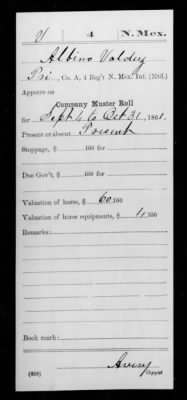 V | 4 | N. Mex.
Albino Valdez
Pri, Co. A, 4 Reg't N. Mex. Inf. (Mtd.)
Appears on
Company Muster Roll
for Sept 4 to Oct 31, 1861.
Present or absent Present
Stoppage, $ 100 for
Due Gov't, $ 100 for
Valuation of horse, $ 60 100
Valuation of horse equipments, $ 10 100
Remarks:
Book mark:
Avery
(858) Copyist